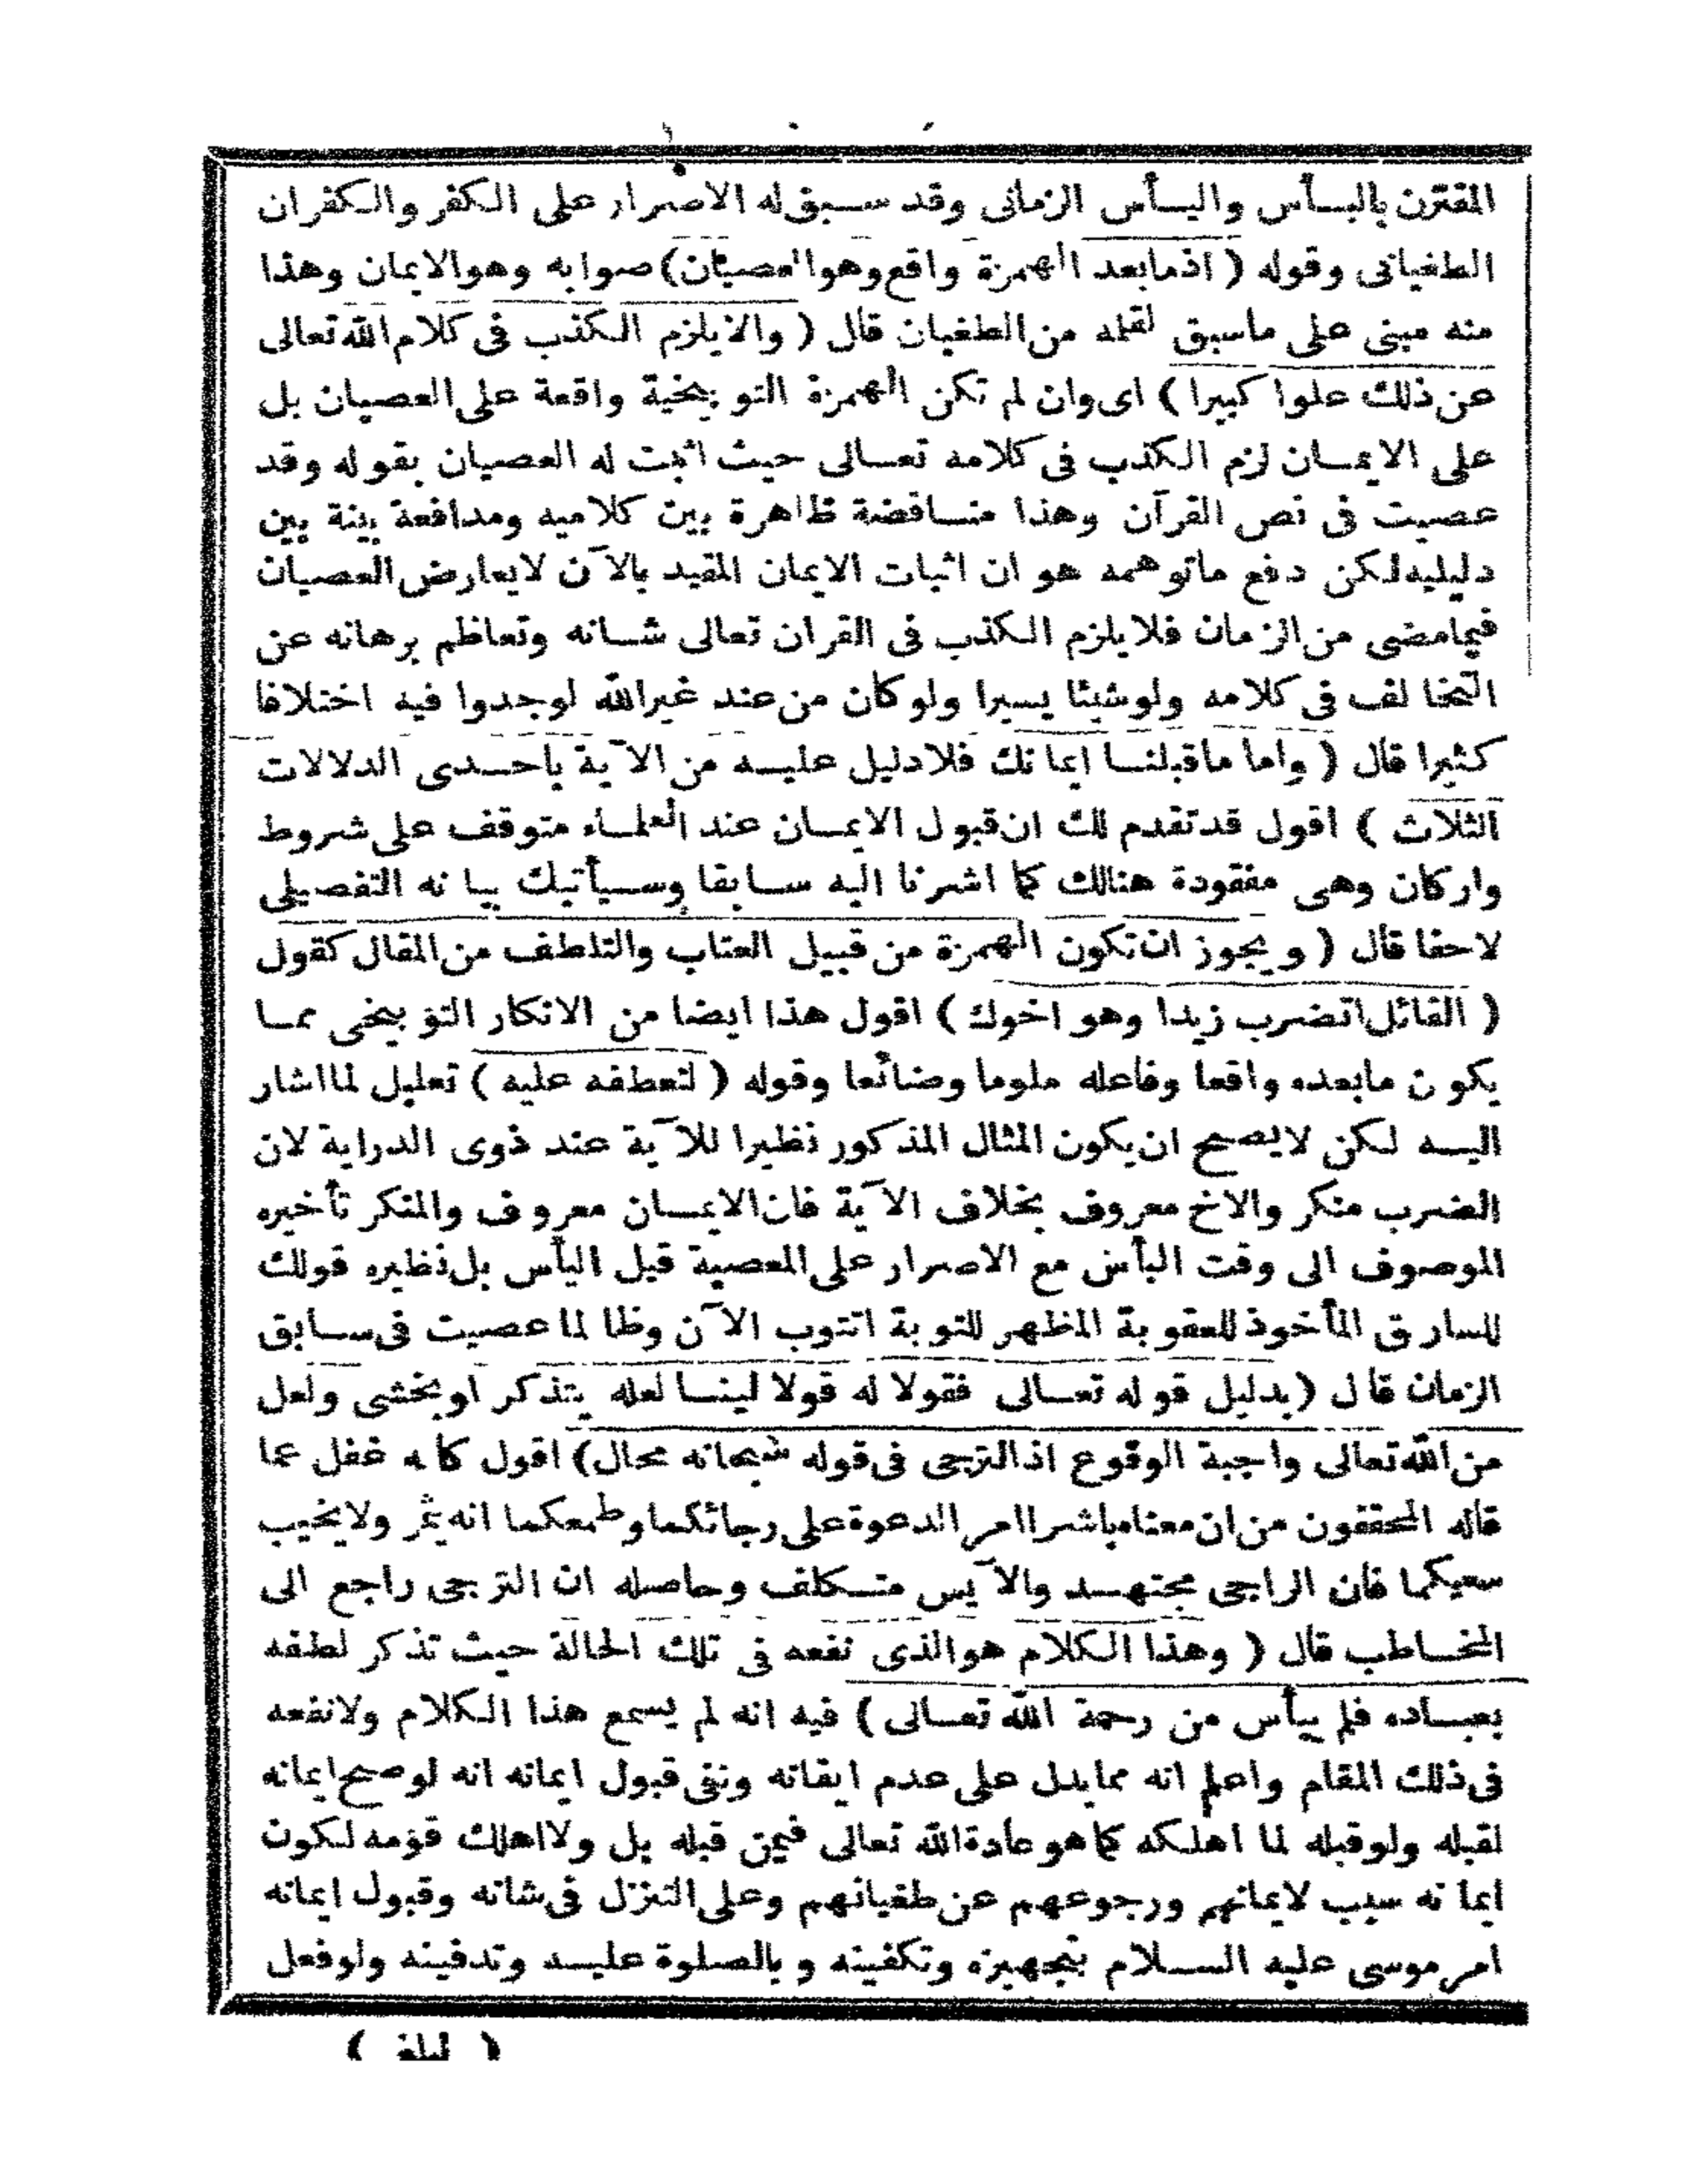 المقترن بالبأس واليأس الزمانى وقد سبق له الاصرار على الكفر والكفران
الطغيانى وقوله ( اذ مابعد الهمزة واقع وهو العصيان) صوابه وهو الايمان وهذا
منه مبنى على ماسبق لقله من الطغيان قال ( والا يلزم الكذب فى كلام الله تعالى
عن ذلك علوا كبيرا ) اى وان لم تكن الهمزة التوبيخية واقعة على العصيان بل
على الايمان لزم الكذب فى كلامه تعالى حيث اثبت له العصيان بقوله وقد
عصيت فى نص القرآن وهذا مناقضة ظاهرة بين كلاميه ومدافعة بينة بين
دليليه لكن دفع ماتوهمه هو ان اثبات الايمان المقيد بالآن لايعارض العصيان
فيما مضى من الزمان فلايلزم الكذب فى القران تعالى شانه وتعاظم برهانه عن
التخالف فى كلامه ولو شيئا يسيرا ولو كان من عند غير الله لوجدوا فيه اختلافا
كثيرا قال ( واما ماقبلنا ايمانك فلادليل عليه من الآية باحدى الدلالات
الثلاث ) اقول قد تقدم لك ان قبول الايمان عند العلماء متوقف على شروط
واركان وهى مفقودة هنالك كما اشرنا اليه سابقا وسيأتيك بيانه التفصيلى
لاحقا قال ( ويجوز ان تكون الهمزة من قبيل العتاب والتلطف من المقال كقول
( القائل اتضرب زيدا وهو اخوك ) اقول هذا ايضا من الانكار التوبيخى مما
يكون مابعده واقعا وفاعله ملوما وضائعا وقوله ( لتعطفه عليه ) تعليل لما اشار
اليه لكن لايصح ان يكون المثال المذكور نظيرا للآية عند ذوى الدراية لان
الضرب منكر والاخ معروف بخلاف الآية فان الايمان معروف والمنكر تأخيره
الموصوف الى وقت البأس مع الاصرار على المعصية قبل اليأس بل نظيره قولك
للسارق المأخوذ للعقوبة المظهر للتوبة اتتوب الآن وظالما عصيت فى سابق
الزمان قال ( بدليل قوله تعالى فقولا له قولا لينا لعله يتذكر او يخشى ولعل
من الله تعالى واجبة الوقوع اذ الترجى فى قوله سبحانه محال) اقول كانه غفل عما
قاله المحققون من ان معناه باشرا امر الدعوة على رجائكما وطمعكما انه يثمر ولايخيب
سعيكما فان الراجى مجتهد والآيس متكلف وحاصله ان الترجى راجع الى
المخاطب قال ( وهذا الكلام هو الذى نفعه فى تلك الحالة حيث تذكر لطفه
بعباده فلم ييأس من رحمة الله تعالى ) فيه انه لم يسمع هذا الكلام ولانفعه
فى ذلك المقام واعلم انه مما يدل على عدم ايقانه ونفى قبول ايمانه انه لو صح ايمانه
لقبله ولو قبله لما اهلكه كما هو عادة الله تعالى فيمن قبله بل ولا اهلك قومه لكون
ايمانه سبب لايمانهم ورجوعهم عن طغيانهم وعلى التنزل فى شانه وقبول ايمانه
امر موسى عليه السلام بتجهيزه وتكفينه و بالصلوة عليه وتدفينه ولو فعل
( لبلغ )